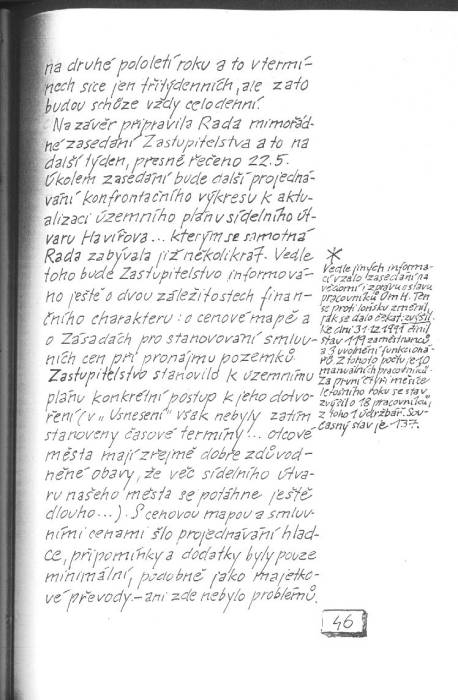 na druhé pololetí roku a to v termí-
nech sice jen třítýdenních, ale zato
budou schůze vždy celodenní.
Na závěr připravila Rada mimořád-
né zasedání Zastupitelstva a to na
další týden, přesně řečeno 22.5.
Úkolem zasedání bude další projedná-
vání konfrontačního výkresu k aktu-
alizaci územního plánu sídelního út-
varu Havířova... kterým se samotná
Rada zabývala již několikrát. Vedle
toho bude Zastupitelstvo informová-
no ještě o dvou záležitostech finan-
čního charakteru: o cenové mapě a
o Zásadách pro stanovování smluv-
ních cen při pronájmu pozemků.
Zastupitelstvo stanovilo k územnímu
plánu konkrétní postup k jeho dotvo-
ření (v „Usnesení" však nebyly zatím
stanoveny časové termíny... otcové
města mají zřejmě dobře zdůvod-
něné obavy, že věc sídelního útva-
ru našeho města se potáhne ještě
dlouho...). S cenovou mapou a smluv-
ními cenami šlo projednávání hlad-
ce, připomínky a dodatky byly pouze
minimální, podobně jako majetko-
vé převody – ani zde nebylo problémů.
*
Vedle jiných informa-
cí vzalo zasedání na
vědomí i zprávu o stavu
pracovníků ÚmH. Ten
se proti loňsku změnil,
jak se dalo čekat: zvýšil.
Ke dni 31.12.1991 činil
stav 119 zaměstnanců
a 3 uvolnění funkcioná-
ři. Z tohoto počtu je 10
manuálních pracovníků.
Za první čtyři měsíce
letošního roku se stav
zvýšil o 18 pracovníků,
z toho 1 údržbář. Sou-
časný stav je 137.
46